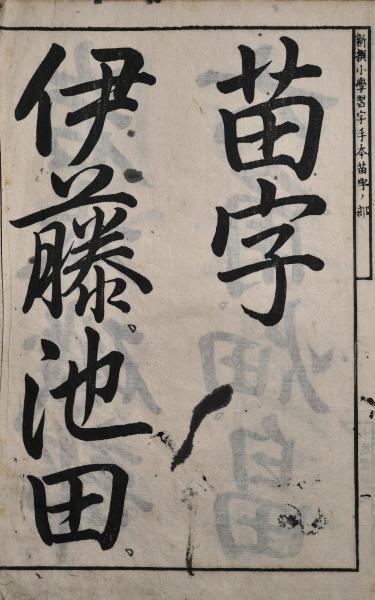 新撰小學習字手本苗字ノ部
苗字
伊藤。池田。
一